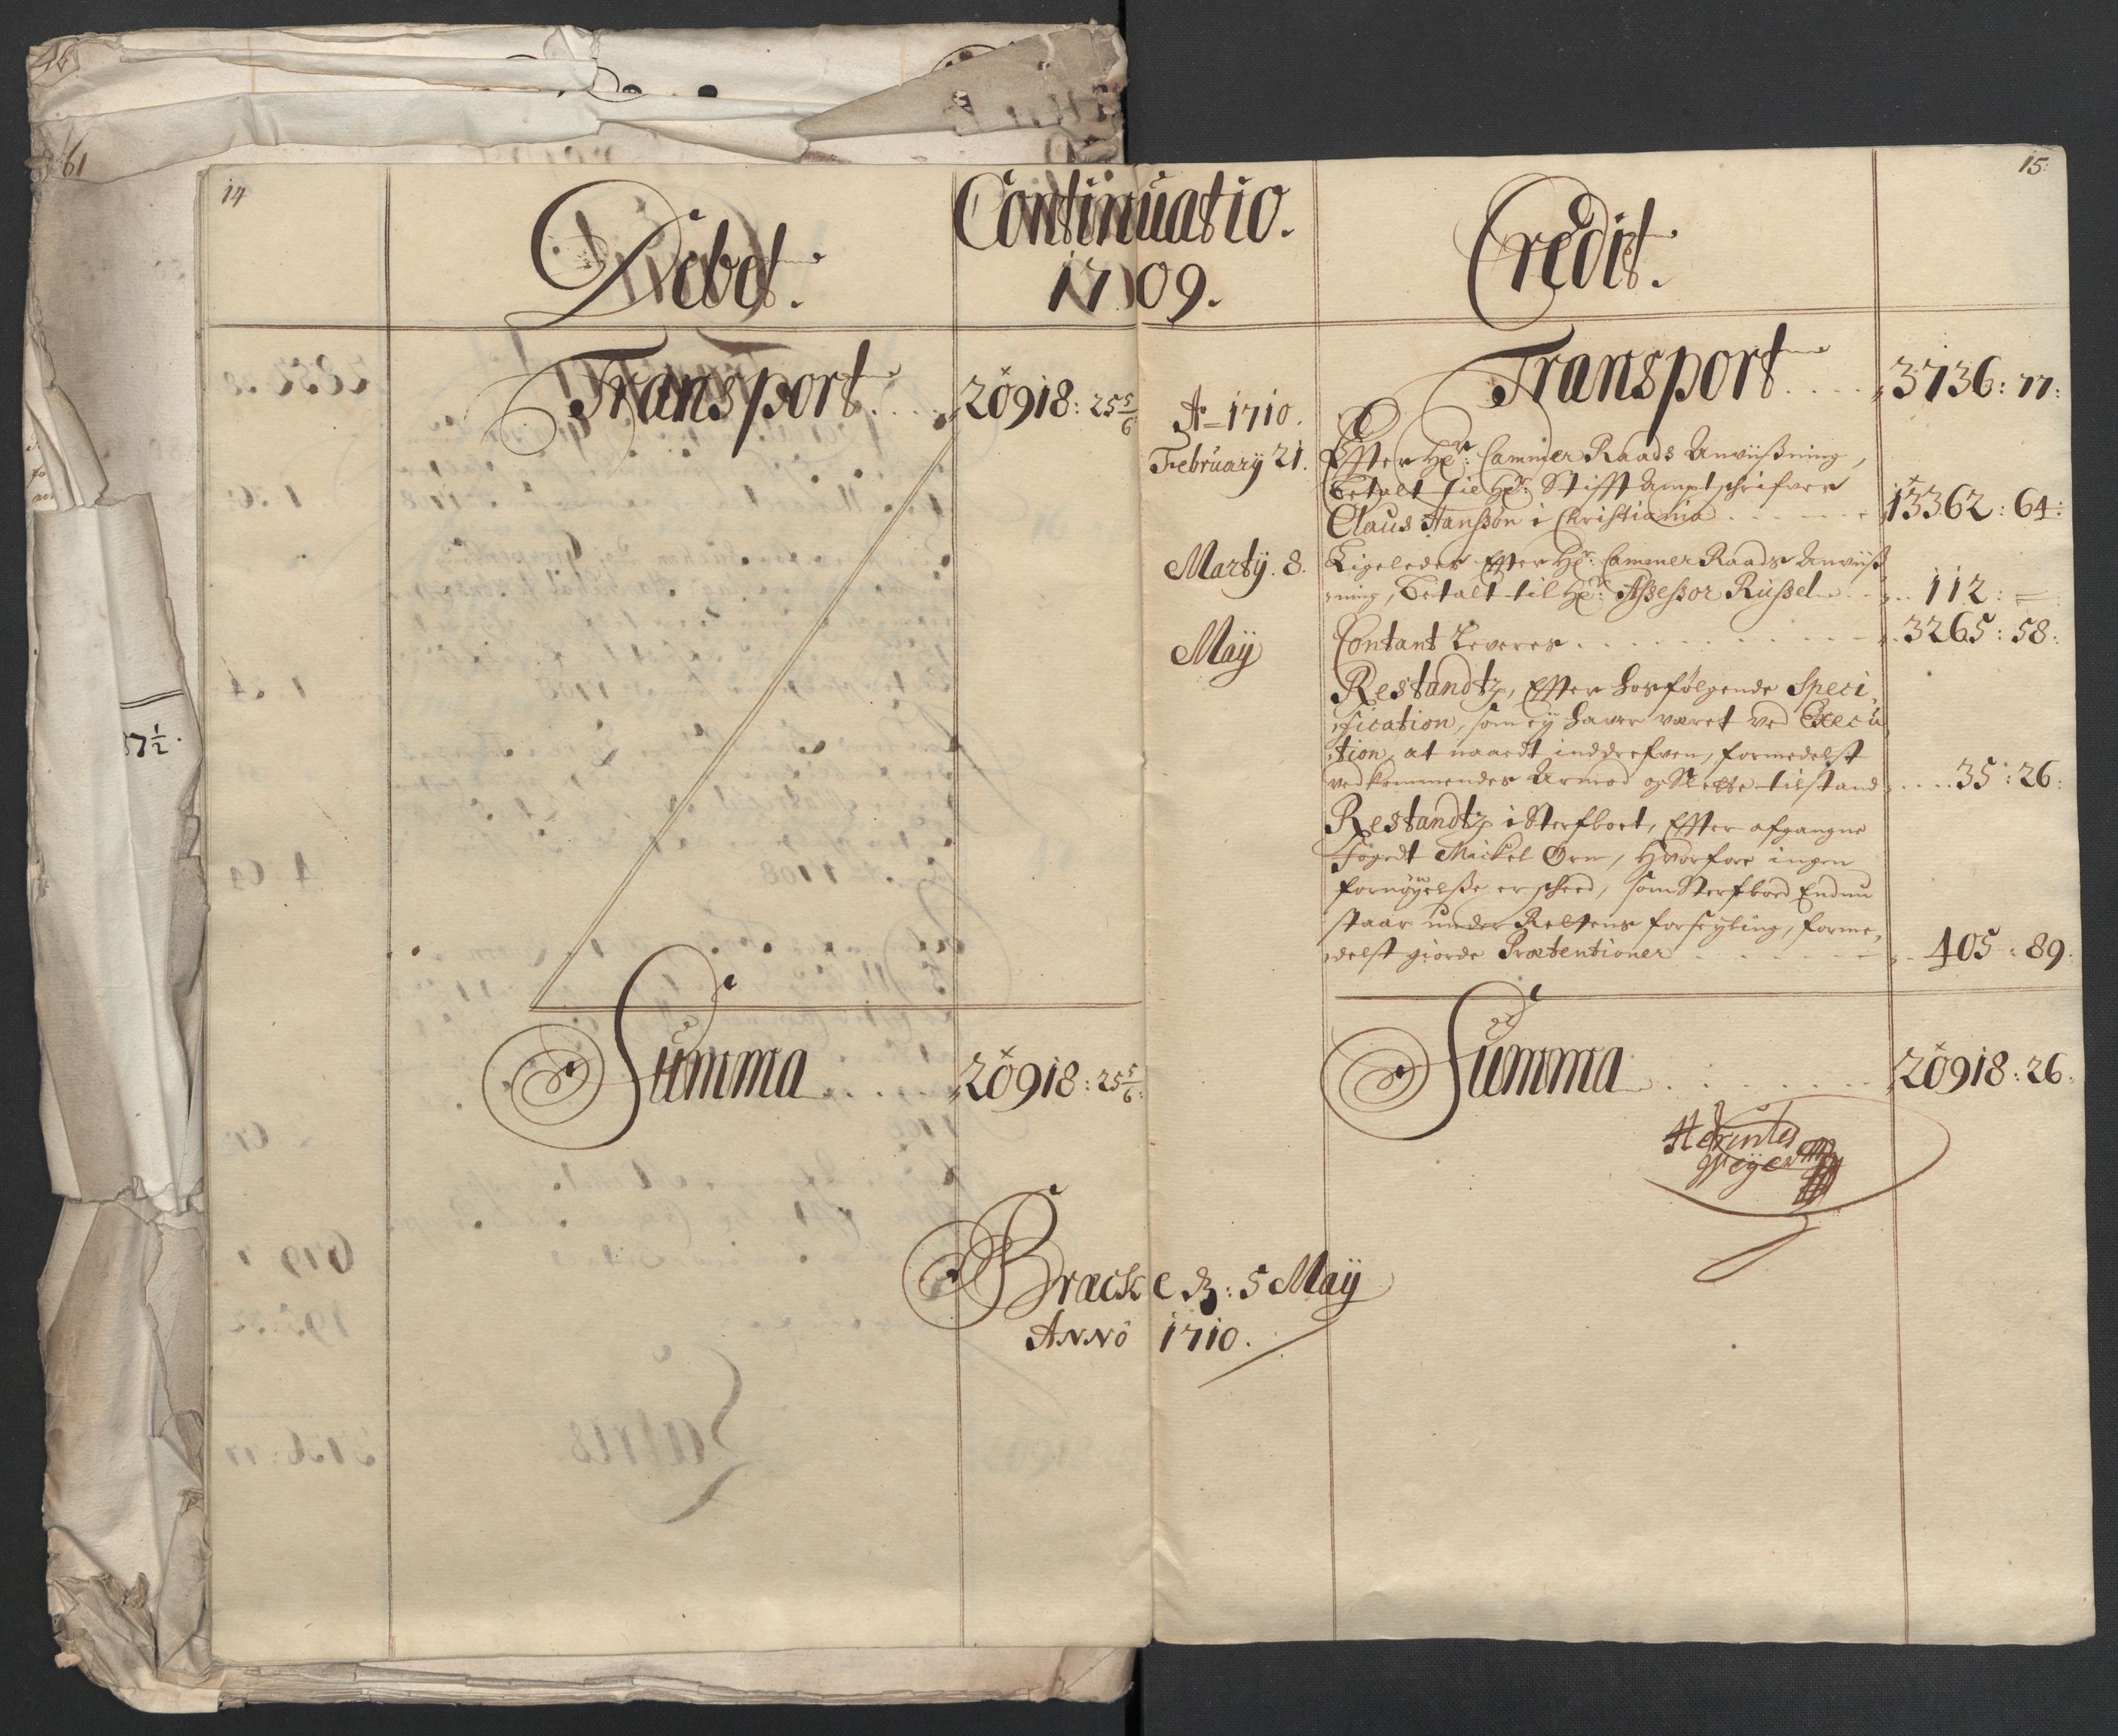 46
61
37 1/2.
14
Debet.
Continuatio.
1709.
Transport . . . . 20918: 25 5/6
Summa . . . . 20918: 25 5/6:
Bracke d: 5 Maÿ
Anno 1710.
15:
Credit.
Transport . . . . 3736: 77:
Ao 1710.
Februarÿ 21. Efter Hr: Cammer Raads Anviißning,
betalt til Hr: Stifft Ampt schrifver
Claus Hanßøn i Christiania . . . . 13362: 64:
Martÿ. 8. Ligeledes Efter Hr: Cammer Raads Anviiß
ning, betalt til Hr: Aßeßor Rußel . . 112: =
Maÿ Contant Leveres . . . . 3265: 58:
Restandtz, Efter hosfølgende Speci,
,fication, som eÿ hafver været ved Execu
,tion, at naaedt inddrefven, formedelst
vedkommendes Armod og Slette tilstand . . . . 35: 26:
Restandtz i Sterfboet, Efter afgangne
Fogedt Mickel Ørn, hvorfore ingen
fornøyelße er scheed, som Sterfboed Endnu
staar under Rettens forseÿling, forme,
,delst giorde Prætentioner . . . . 405: 89:
Summa . . . . 20918: 26: